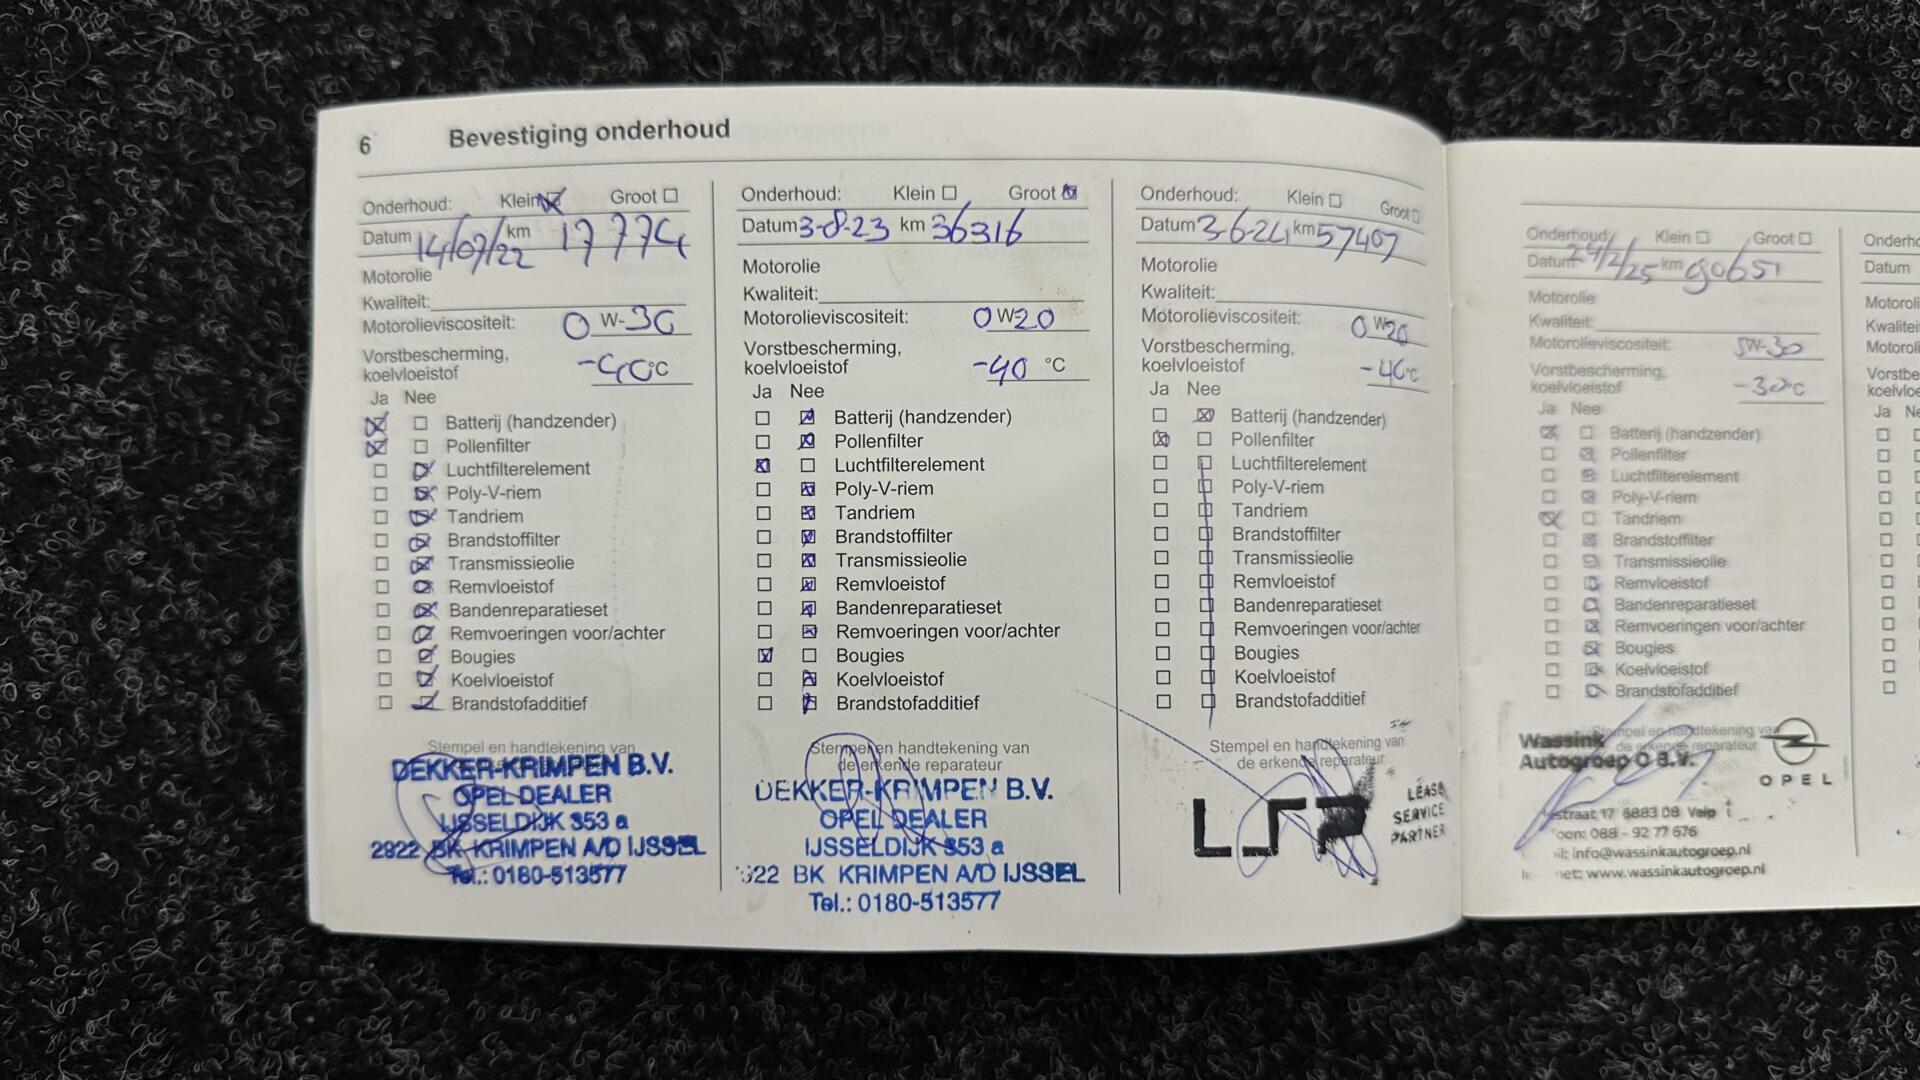 6 Bevestiging onderhoud
Onderhoud: Klein Groot
Datum 14/07/22 km 17774
Motorolie
Kwaliteit:
Motorolieviscositeit: 0 W-30
Vorstbescherming,
koelvloeistof -40°C
Ja Nee
Batterij (handzender)
Pollenfilter
Luchtfilterelement
Poly-V-riem
Tandriem
Brandstoffilter
Transmissieolie
Remvloeistof
Bandenreparatieset
Remvoeringen voor/achter
Bougies
Koelvloeistof
Brandstofadditief
Stempel en handtekening van
DEKKER-KRIMPEN B.V.
OPEL DEALER
IJSSELDIJK 353 a
2922 BK KRIMPEN A/D IJSSEL
Tel.: 0180-513577
Onderhoud: Klein Groot
Datum 3-8-23 km 36316
Motorolie
Kwaliteit:
Motorolieviscositeit: 0 W20
Vorstbescherming,
koelvloeistof -40 °C
Ja Nee
Batterij (handzender)
Pollenfilter
Luchtfilterelement
Poly-V-riem
Tandriem
Brandstoffilter
Transmissieolie
Remvloeistof
Bandenreparatieset
Remvoeringen voor/achter
Bougies
Koelvloeistof
Brandstofadditief
Stempel en handtekening van
de erkende reparateur
DEKKER-KRIMPEN B.V.
OPEL DEALER
IJSSELDIJK 353 a
922 BK KRIMPEN A/D IJSSEL
Tel.: 0180-513577
Onderhoud: Klein Groot
Datum 3-6-24 km 57407
Motorolie
Kwaliteit:
Motorolieviscositeit: 0 W20
Vorstbescherming,
koelvloeistof -40°C
Ja Nee
Batterij (handzender)
Pollenfilter
Luchtfilterelement
Poly-V-riem
Tandriem
Brandstoffilter
Transmissieolie
Remvloeistof
Bandenreparatieset
Remvoeringen voor/achter
Bougies
Koelvloeistof
Brandstofadditief
Stempel en handtekening van
de erkende reparateur
LSP
LEASE
SERVICE
PARTNER
Onderhoud: Klein Groot
Datum 24/2/25 km 90651
Motorolie
Kwaliteit:
Motorolieviscositeit: 5W-30
Vorstbescherming,
koelvloeistof -30°C
Ja Nee
Batterij (handzender)
Pollenfilter
Luchtfilterelement
Poly-V-riem
Tandriem
Brandstoffilter
Transmissieolie
Remvloeistof
Bandenreparatieset
Remvoeringen voor/achter
Bougies
Koelvloeistof
Brandstofadditief
Stempel en handtekening van
de erkende reparateur
Wassink
Autogroep O B.V.
OPEL
straat 17 6883 DB Velp
oon: 088 - 92 77 676
il: info@wassinkautogroep.nl
net: www.wassinkautogroep.nl
Onderho
Datum
Motoroli
Kwaliteit
Motoroli
Vorstbe
koelvloe
Ja Ne